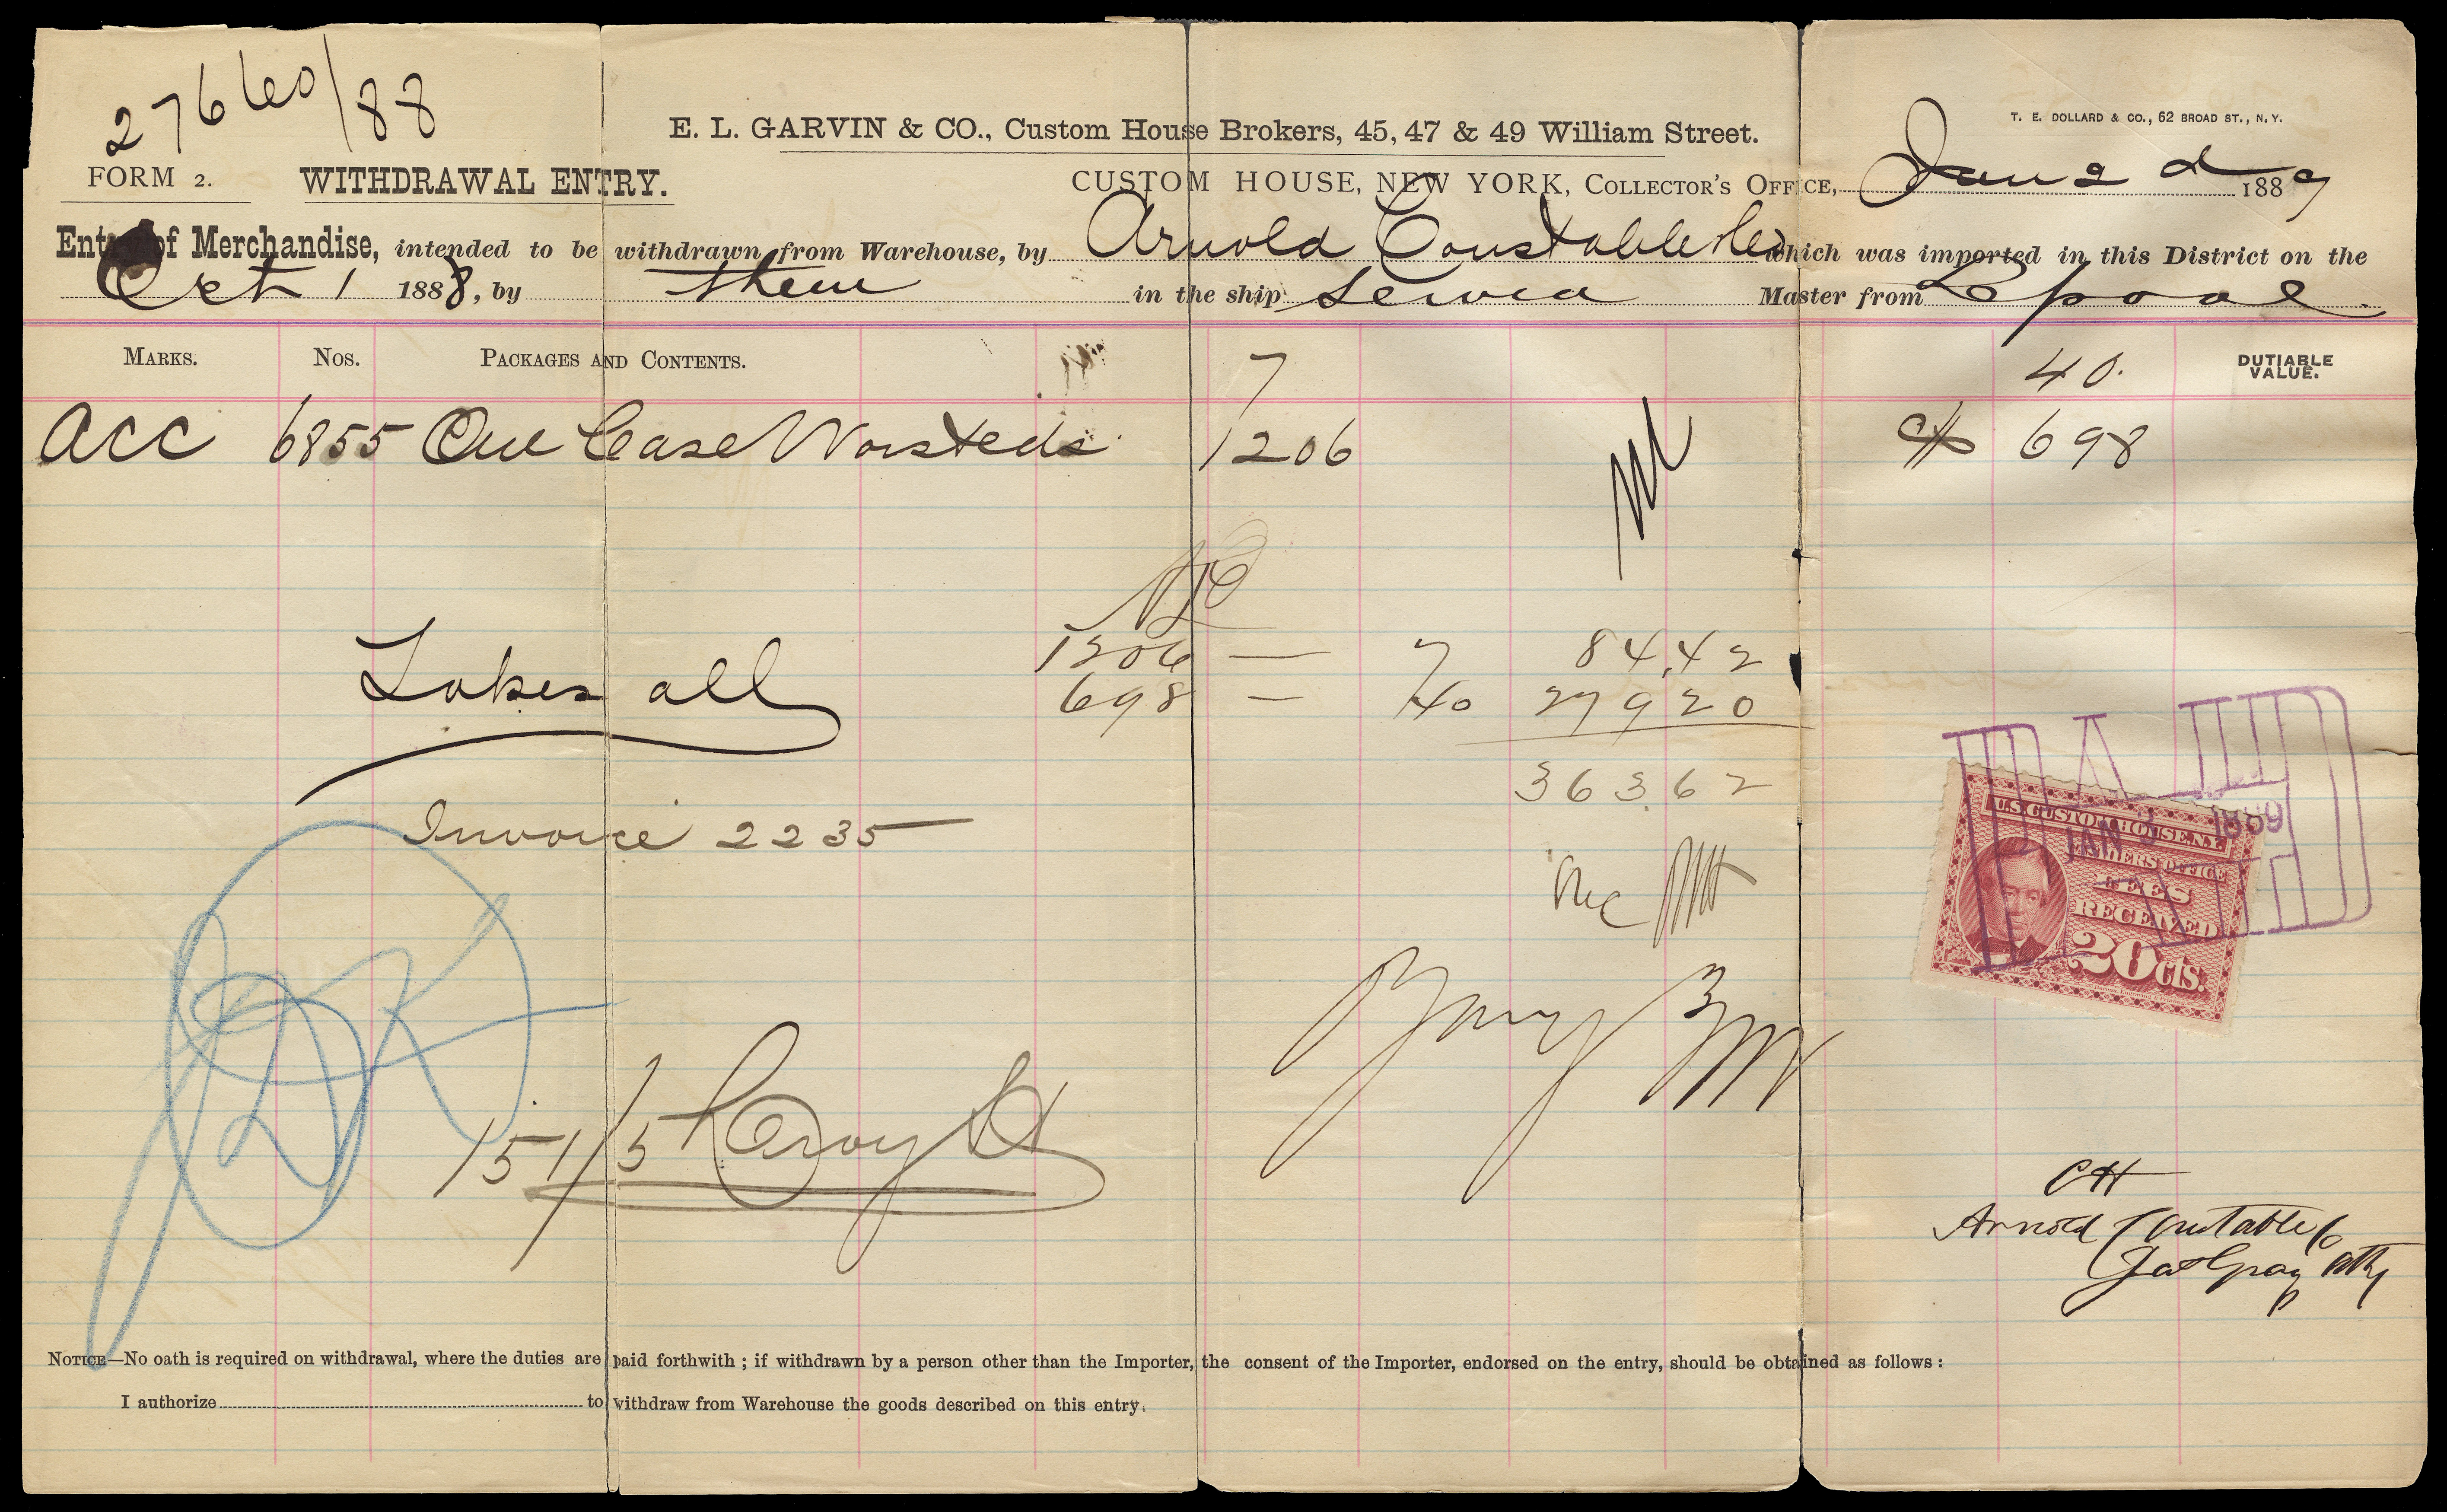 27660/88
E. L. GARVIN & CO., Custom House Brokers, 45, 47 & 49 William Street.
T. E. DOLLARD & CO., 62 BROAD ST., N.Y.
FORM 2. WITHDRAWAL ENTRY.
CUSTOM HOUSE, NEW YORK, COLLECTOR'S OFFICE, Jan 2d 1889
Entry of Merchandise, intended to be withdrawn from Warehouse, by Arnold Constable & Co which was imported in this District on the
Oct 1 1888, by them in the ship Servia Master from Lpool.
MARKS. NOS. PACKAGES AND CONTENTS. 7 40. DUTIABLE VALUE.
ACC 6855 One Case Worsteds 1206 $ 698
1206 — 7 84.42
Takes all 698 — 40 279 20
363.62
Invoice 2235
U.S. CUSTOM HOUSE, N.Y.
CASHIERS OFFICE
FEES
RECEIVED
20 cts.
PAID
JAN 3 1889
151/5 Leroy St
CH
Arnold Constable Co
Jas Gray atty
NOTICE—No oath is required on withdrawal, where the duties are paid forthwith; if withdrawn by a person other than the Importer, the consent of the Importer, endorsed on the entry, should be obtained as follows:
I authorize to withdraw from Warehouse the goods described on this entry.